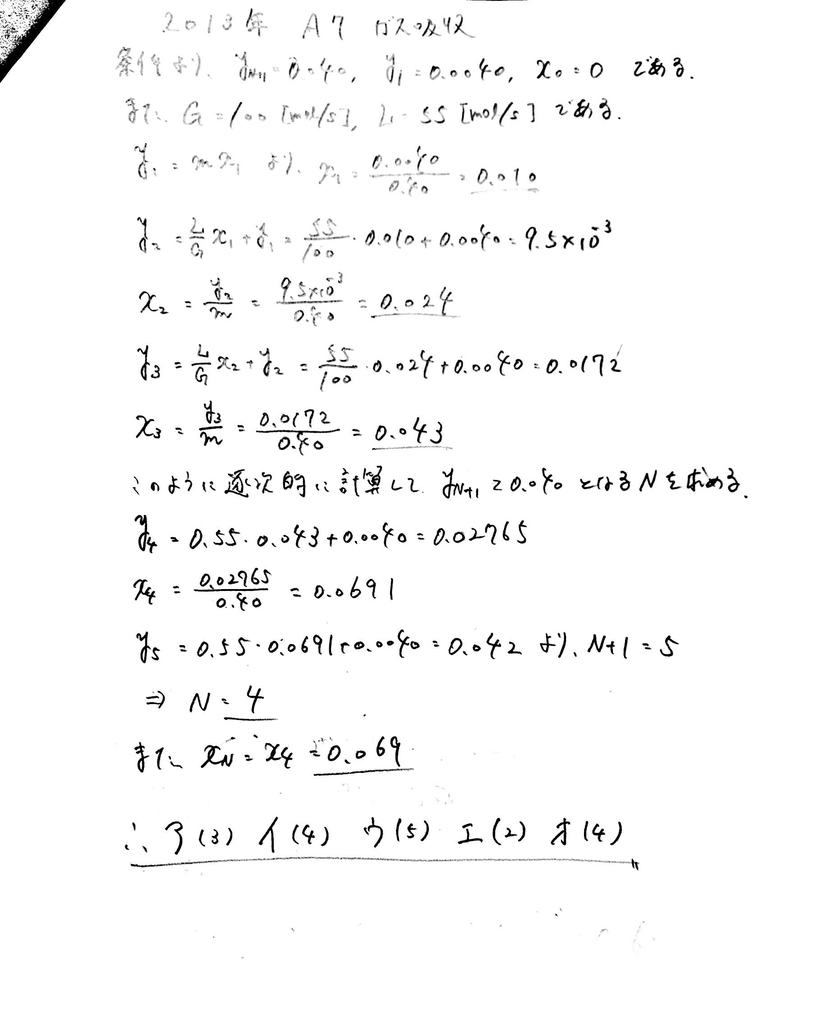 2013年 A7 ガス吸収
条件より、y_{N+1}=0.040, y_1=0.0040, x_0=0 である.
また、G=100 [mol/s], L=55 [mol/s] である.
y_1 = mx_1 より、x_1 = 0.0040/0.40 = 0.010
y_2 = L/G x_1 + y_1 = 55/100 · 0.010 + 0.0040 = 9.5×10^{-3}
x_2 = y_2/m = 9.5×10^{-3}/0.40 = 0.024
y_3 = L/G x_2 + y_2 = 55/100 · 0.024 + 0.0040 = 0.0172
x_3 = y_3/m = 0.0172/0.40 = 0.043
このように逐次的に計算して y_{N+1} ≥ 0.040 となる N を求める.
y_4 = 0.55 · 0.043 + 0.0040 = 0.02765
x_4 = 0.02765/0.40 = 0.0691
y_5 = 0.55 · 0.0691 + 0.0040 = 0.042 より、N+1 = 5
⇒ N = 4
また、x_N = x_4 = 0.069
∴ ア(3) イ(4) ウ(5) エ(2) オ(4)